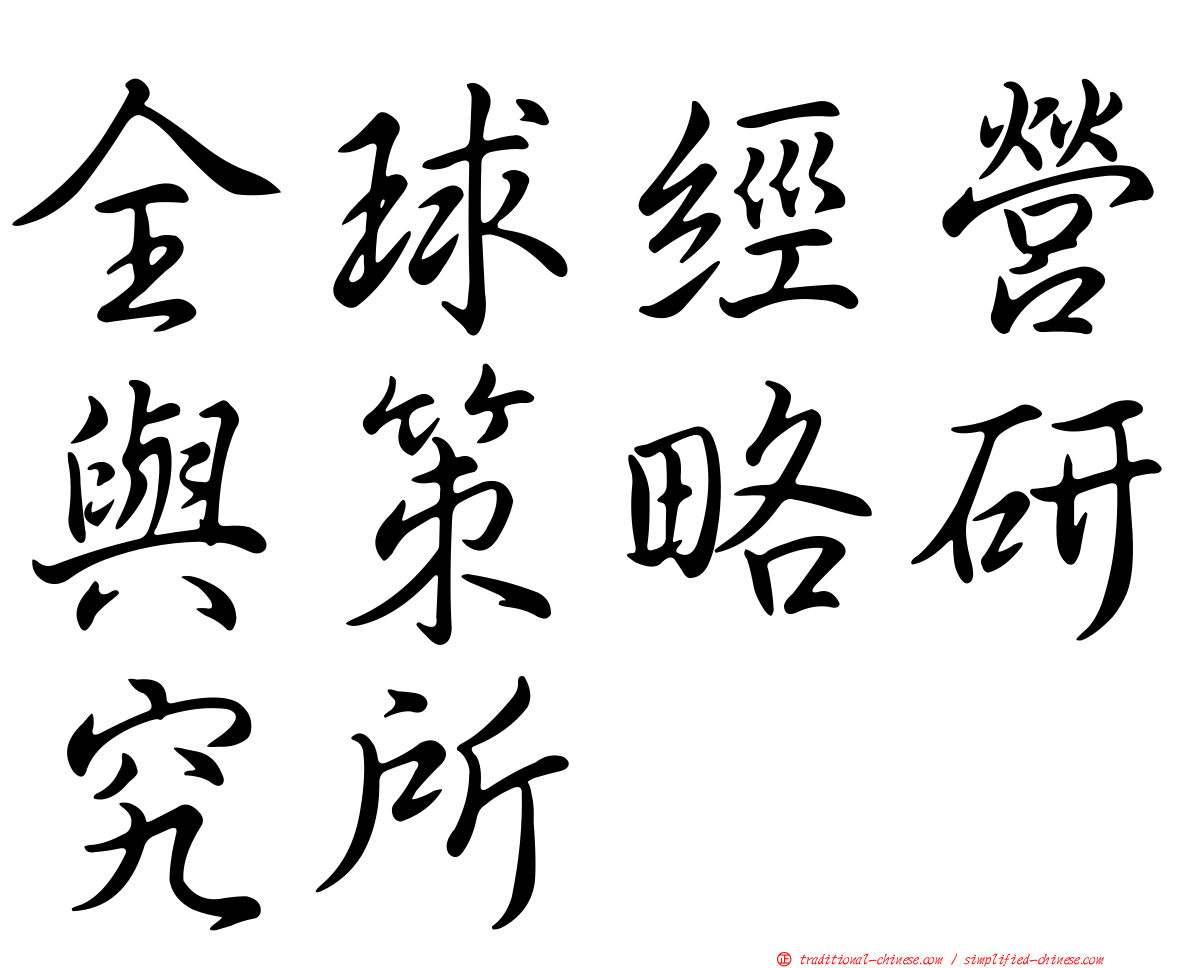 全球經營
與策略研
究所
㊣ traditional-chinese.com / simplified-chinese.com